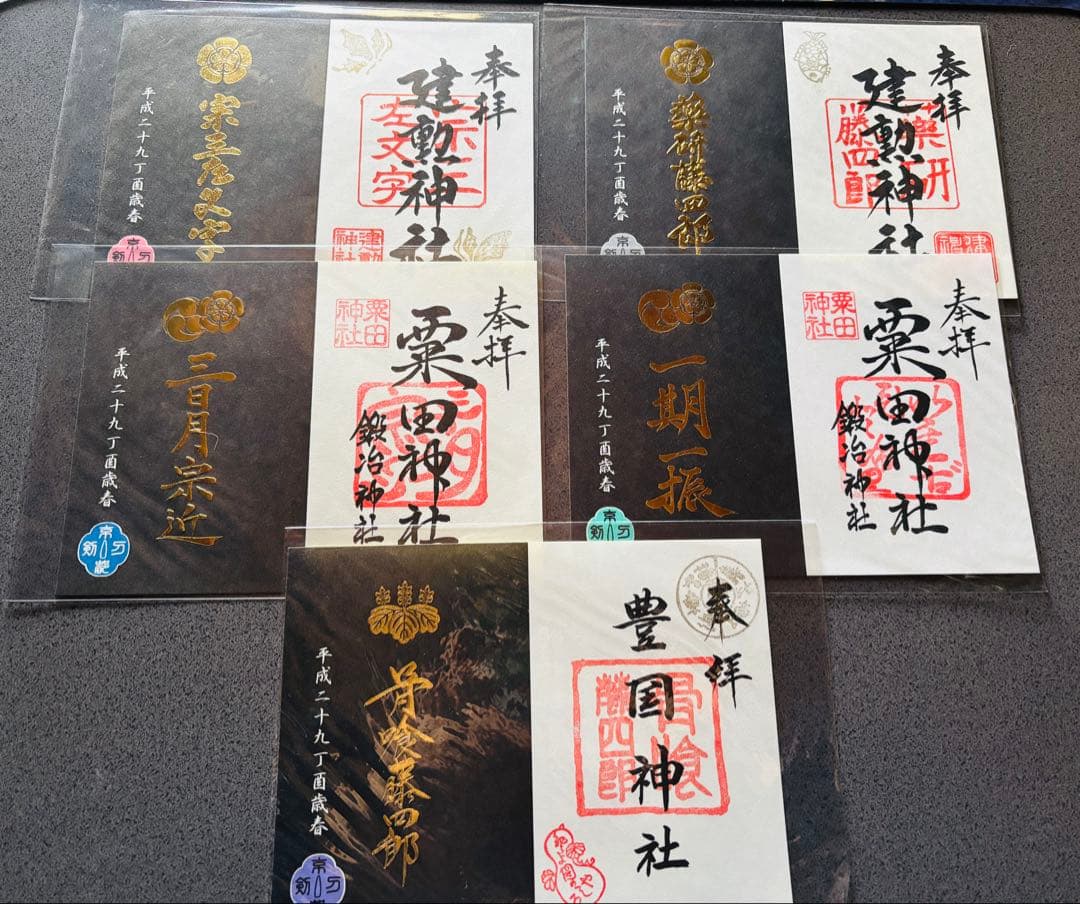 奉拝
建勲神社
左文字
建勲神社
宗三左文字
平成二十九丁酉歳春
奉拝
建勲神社
薬研藤四郎
薬研藤四郎
平成二十九丁酉歳春
奉拝
粟田神社
鍛冶神社
粟田神社
三日月宗近
平成二十九丁酉歳春
京刀剣
奉拝
粟田神社
鍛冶神社
粟田神社
一期一振
平成二十九丁酉歳春
奉拝
豊国神社
骨喰藤四郎
骨喰藤四郎
平成二十九丁酉歳春
京刀剣